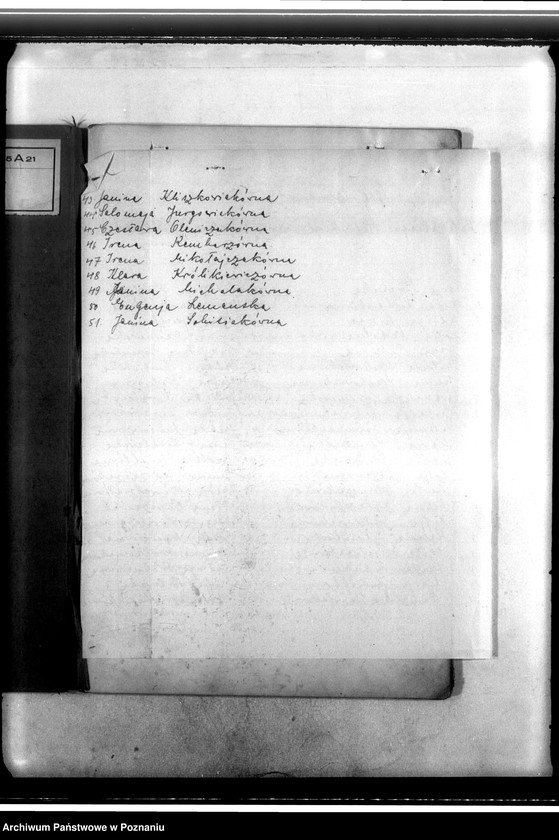 5 A 21
43 Janina Kliszkowiakówna
44 Salomeja Jurgowiakówna
45 Czesława Olejniczakówna
46 Irena Rembarzówna
47 Irena Mikołajczakówna
48 Klara Królikiewiczówna
49 Janina Michalakówna
50 Eugenja Lemanska
51 Janina
Archiwum Państwowe w Poznaniu